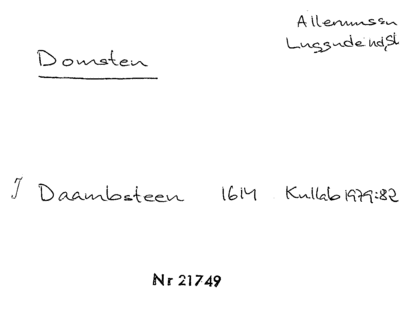 Allerumssn
Luggude hd, Sk
Domsten
J Daambsteen 1614 Kullab 1979:82
Nr 21749